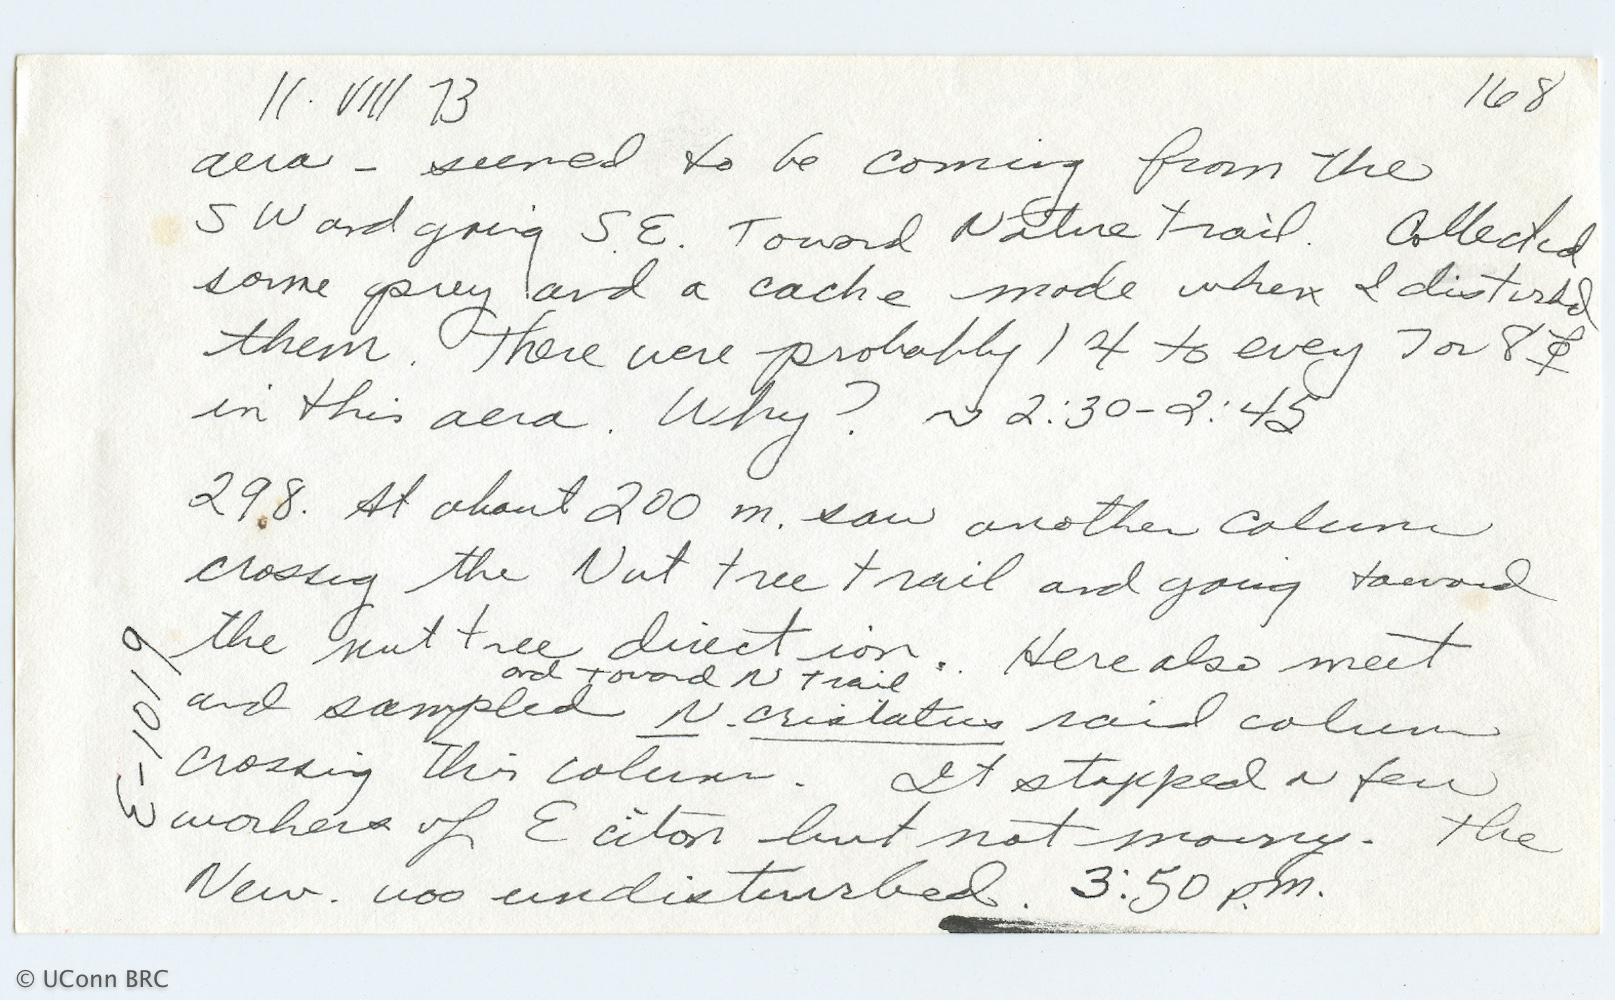 11. VIII 73
168
aera - seemed to be coming from the
SW and going S.E. Toward Nature trail. Collected
some prey and a cache made when I disturbed
them. There were probably 1 4 to every 7 or 8
in this aera. Why? ~ 2:30-2:45
298. At about 200 m. saw another column
crossig the Nut tree trail and going toward
the nut tree direction..
Here also meet
and toward N trail
and sampled N. cristatus raid column
crossing this column. It stopped a few
workers of Eciton but not many. The
New. was undisturbed. 3:50 p.m.
E-1019
© UConn BRC